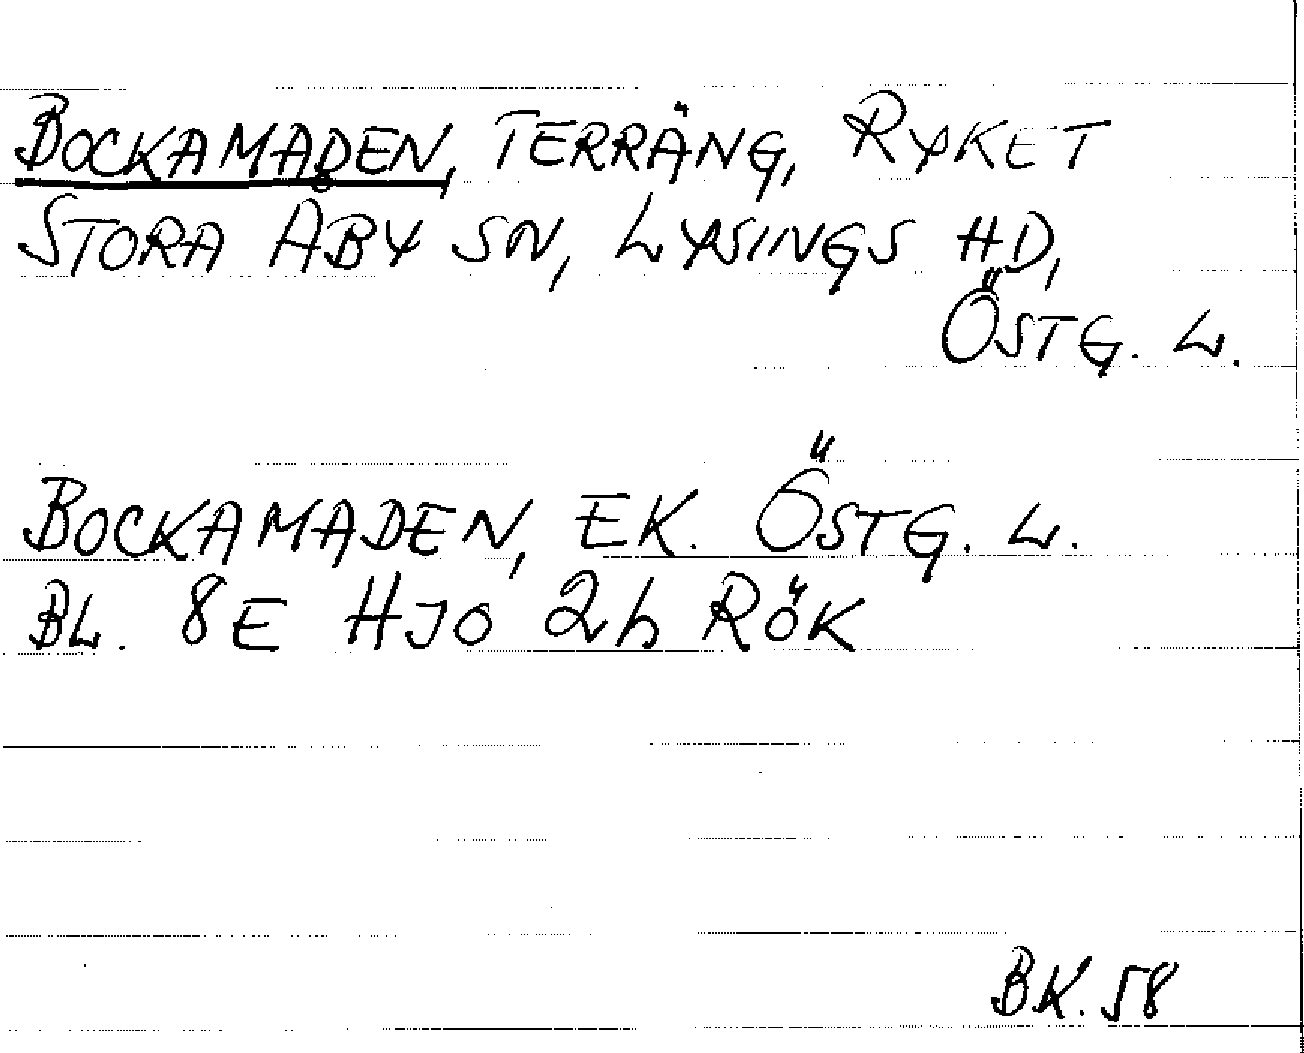 BOCKAMADEN, TERRÄNG, RYKET
STORA ÅBY SN, LYSINGS HD,
ÖSTG. L.
BOCKAMADEN, EK. ÖSTG. L.
BL. 8E HJO 2h RÖK
BK. 58